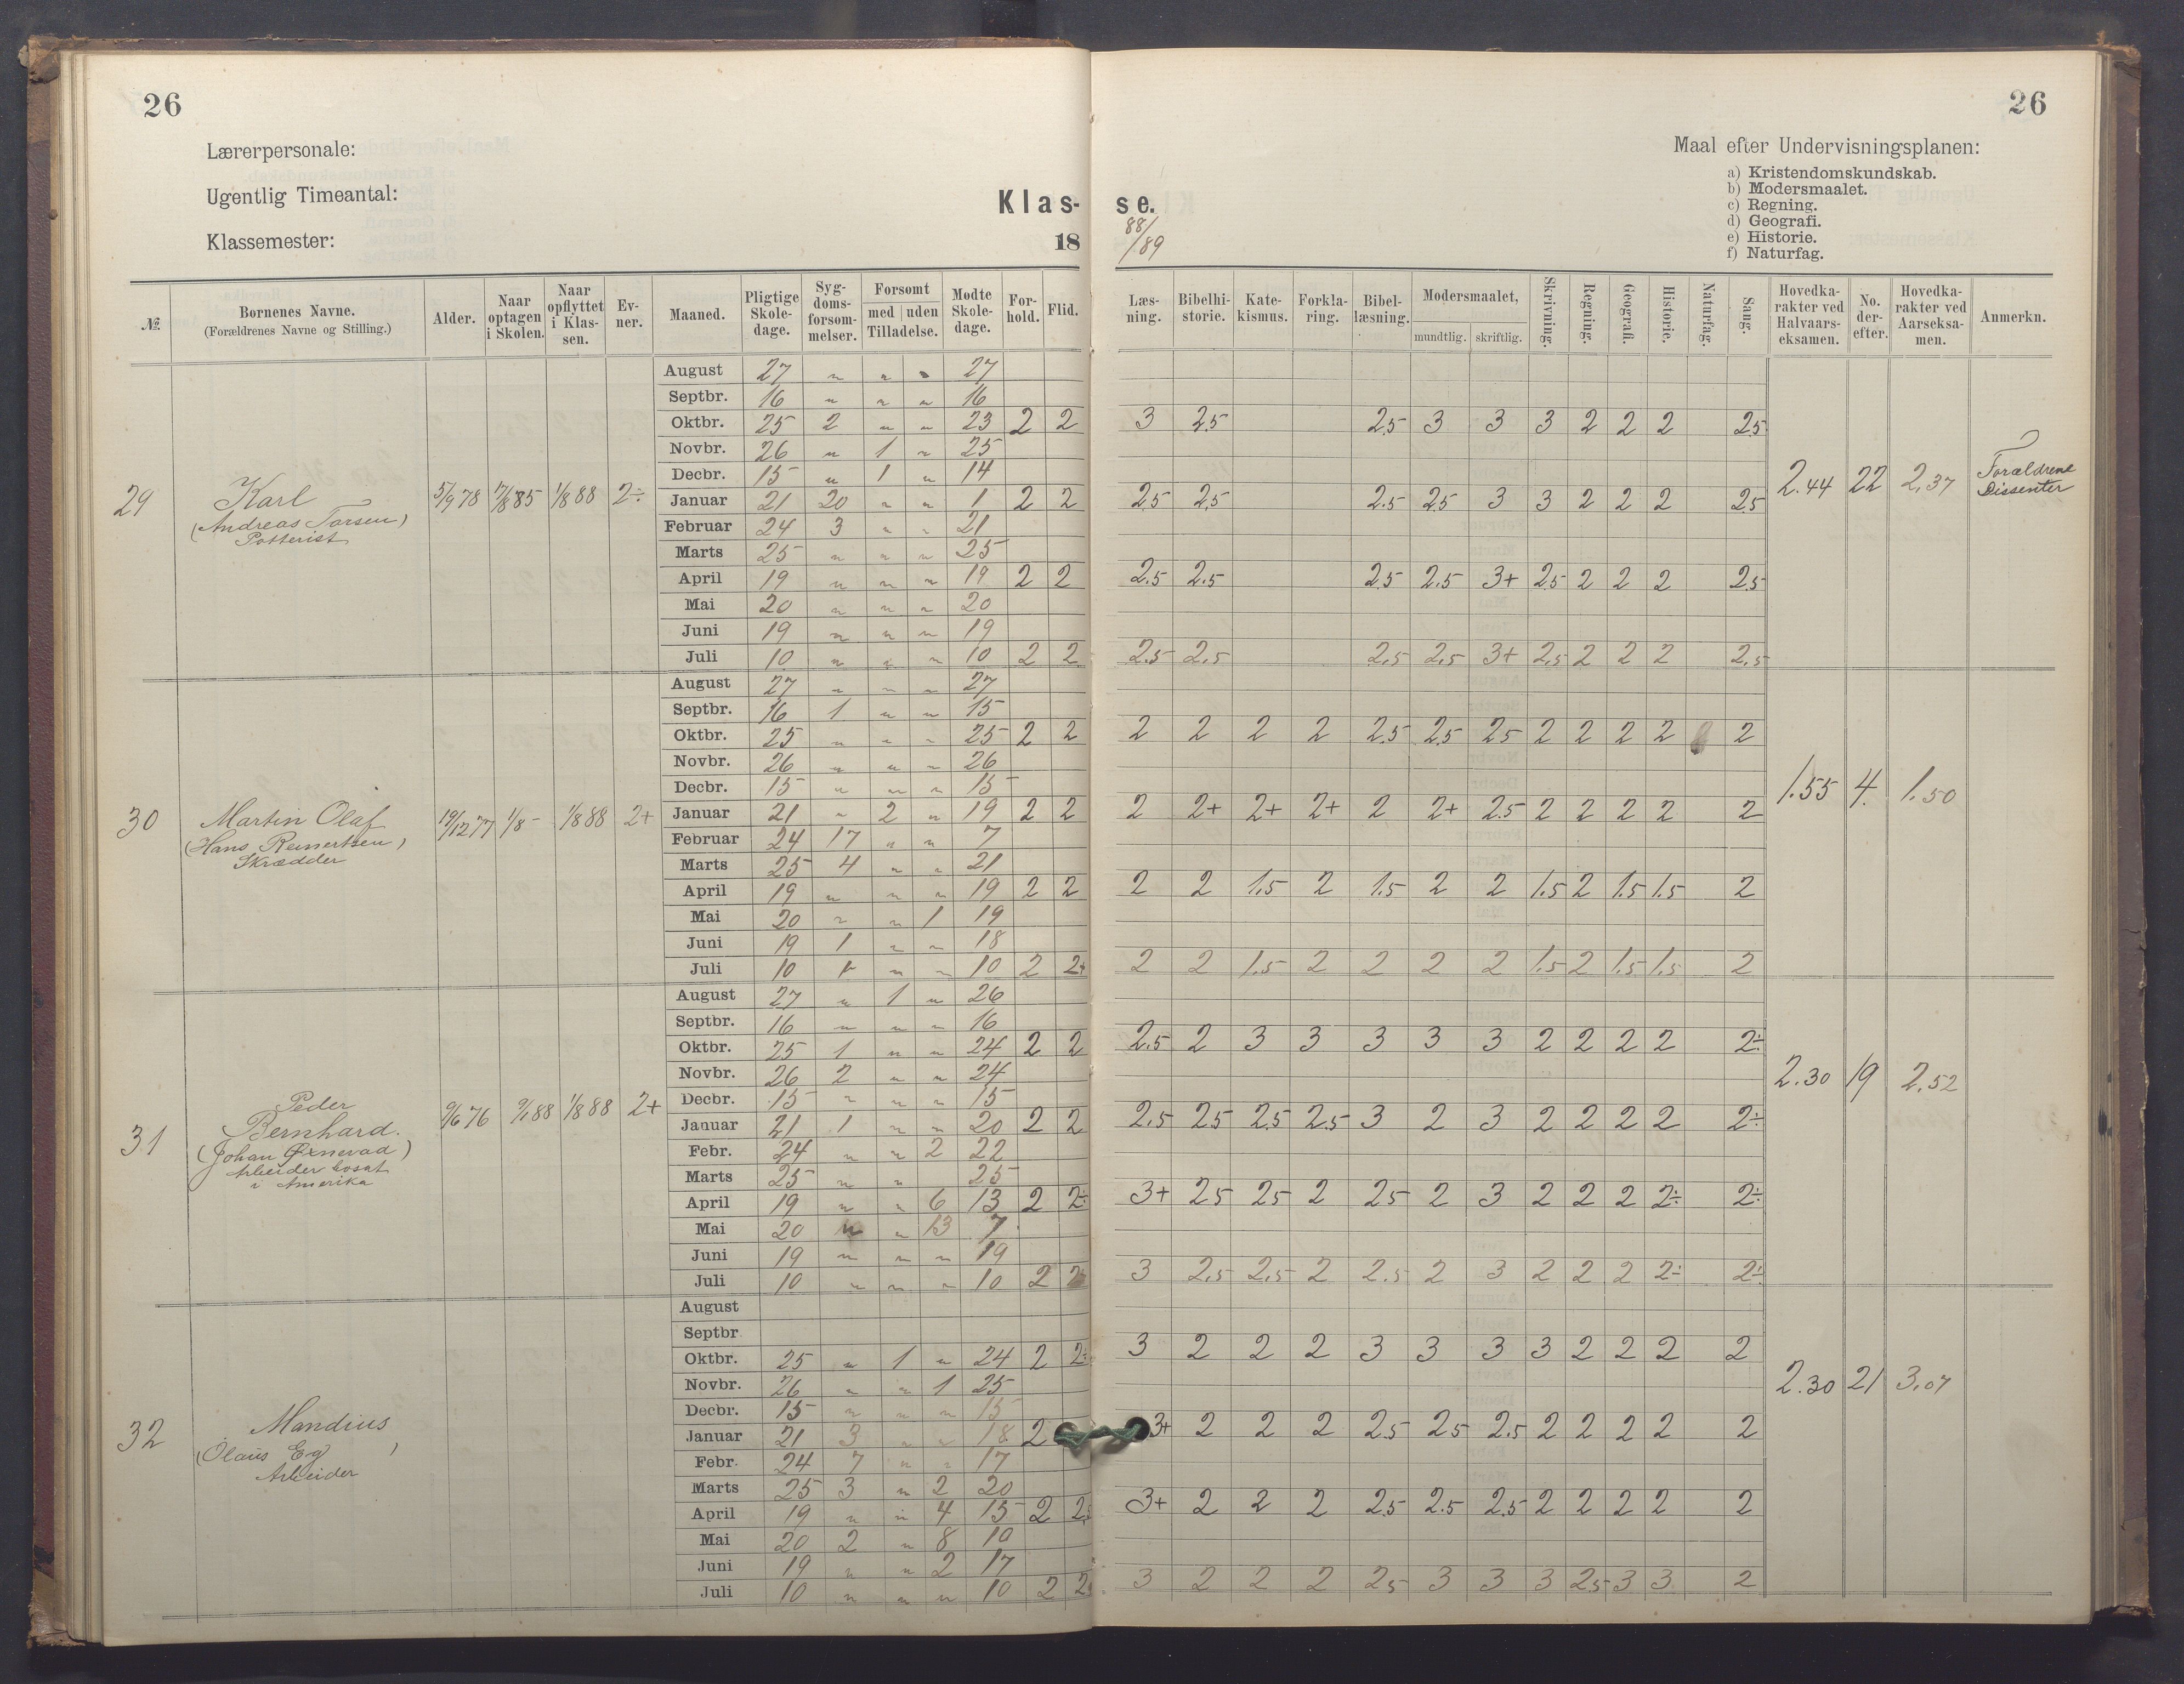 26
26
Lærerpersonale:
Ugentlig Timeantal:
Klassemester:
Klas-
se.
18
88/
/89
Maal efter Undervisningsplanen:
a) Kristendomskundskab.
b) Modersmaalet.
c) Regning.
d) Geografi.
e) Historie.
f) Naturfag.
№ Bornenes Navne. (Forældrenes Navne og Stilling.) Alder. Naar optagen i Skolen. Naar opflyttet i Klas- sen. Ev- ner. Maaned. Pligtige Skole- dage. Syg- doms- forsom- melser. Forsomt med uden Tilladelse. Modte Skole- dage. For- hold. Flid. Læs- ning. Bibelhi- storie. Kate- kismus. Forkla- ring. Bibel- læsning. Modersmaalet, mundtlig. skriftlig. Skrivning. Regning. Geografi. Historie. Naturfag. Sang. Hovedka- rakter ved Halvaars- eksamen. No. der- efter. Hovedka- rakter ved Aarseksa- men. Anmerkn.
29 Karl
(Andreas Torsen)
Potterist
5/9 78 1/8 88 2÷
August 27 " " " 27
Septbr. 16 " " " 16
Oktbr. 25 2 " " 23 2 2 3 2.5 2.5 3 3 3 2 2 2 2.5
Novbr. 26 " 1 " 25
Decbr. 15 " 1 " 14
Januar 21 20 " " 1 2 2 2.5 2.5 2.5 2.5 3 3 2 2 2 2.5
Februar 24 3 " " 21
Marts 25 " " " 25
April 19 " " " 19 2 2 2.5 2.5 2.5 2.5 3+ 2.5 2 2 2 2.5
Mai 20 " " " 20
Juni 19 " " " 19
Juli 10 " " " 10 2 2 2.5 2.5 2.5 2.5 3+ 2.5 2 2 2 2.5
2.44 22 2.37 Forældrene
Dissenter
30 Martin Olaf
(Hans Reinertsen)
Skrædder
19/12 77 1/8 - 1/8 88 2+
August 27 " " " 27
Septbr. 16 1 " " 15
Oktbr. 25 " " " 25 2 2 2 2 2 2 2.5 2.5 2.5 2 2 2 2 2
Novbr. 26 " " " 26
Decbr. 15 " " " 15
Januar 21 " 2 " 19 2 2 2 2+ 2+ 2+ 2 2+ 2.5 2 2 2 2 2
Februar 24 17 " " 7
Marts 25 4 " " 21
April 19 " " " 19 2 2 2 2 1.5 2 1.5 2 2 1.5 2 1.5 1.5 2
Mai 20 " " 1 19
Juni 19 1 " " 18
Juli 10 " " " 10 2 2+ 2 2 1.5 2 2 2 2 1.5 2 1.5 1.5 2
1.55 4. 1.50
31 Peder
Bernhard.
(Johan Ørnevad)
Arbeider bosat
i Amerika
9/6 76 9/1 88 1/8 88 2+
August 27 " 1 " 26
Septbr. 16 " " " 16
Oktbr. 25 1 " " 24 2 2 2.5 2 3 3 3 3 3 2 2 2 2 2÷
Novbr. 26 2 " " 24
Decbr. 15 " " " 15
Januar 21 1 " " 20 2 2 2.5 2.5 2.5 2.5 3 2 3 2 2 2 2 2÷
Febr. 24 " " 2 22
Marts 25 " " 25
April 19 " " 6 13 2 2÷ 3+ 2.5 2.5 2 2.5 2 3 2 2 2 2÷ 2÷
Mai 20 " " 13 7
Juni 19 " " " 19
Juli 10 " " " 10 2 3 2.5 2.5 2 2.5 2 3 2 2 2 2÷ 2÷
2.30 19 2.52
32 Mandius
(Olaus Eg)
Arbeider
August
Septbr
Oktbr. 25 " 1 " 24 2 2÷ 3 2 2 2 3 3 3 3 2 2 2 2
Novbr. 26 " " 1 25
Decbr. 15 " " " 15
Januar 21 3 " " 18 2 3+ 2 2 2 2.5 2.5 2.5 2 2 2 2 2
Febr. 24 7 " " 17
Marts 25 3 " 2 20
April 19 " " 4 15 2 3+ 2 2 2 2.5 2.5 2.5 2 2 2 2 2
Mai 20 2 " 8 10
Juni 19 " " 2 17
Juli 10 " " " 10 2 3 2 2 2 2.5 3 3 3 2.5 3 3 2
2.30 21 3.07